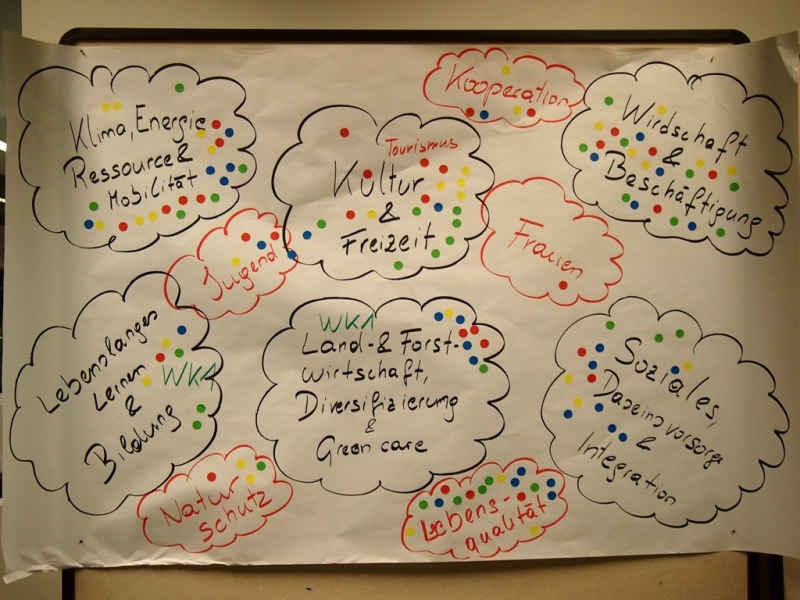 Klima, Energie
Ressource &
Mobilität
Tourismus
Kultur
&
Freizeit
Kooperation
Wirdschaft
&
Beschäftigung
Jugend
Frauen
Lebenslanges
Lernen
&
Bildung
WKA
WKA
Land- & Forst-
wirtschaft,
Diversifizierung
&
Green care
Soziales,
Daseinsvorsorge
&
Integration
Natur
schutz
Lebens-
qualität